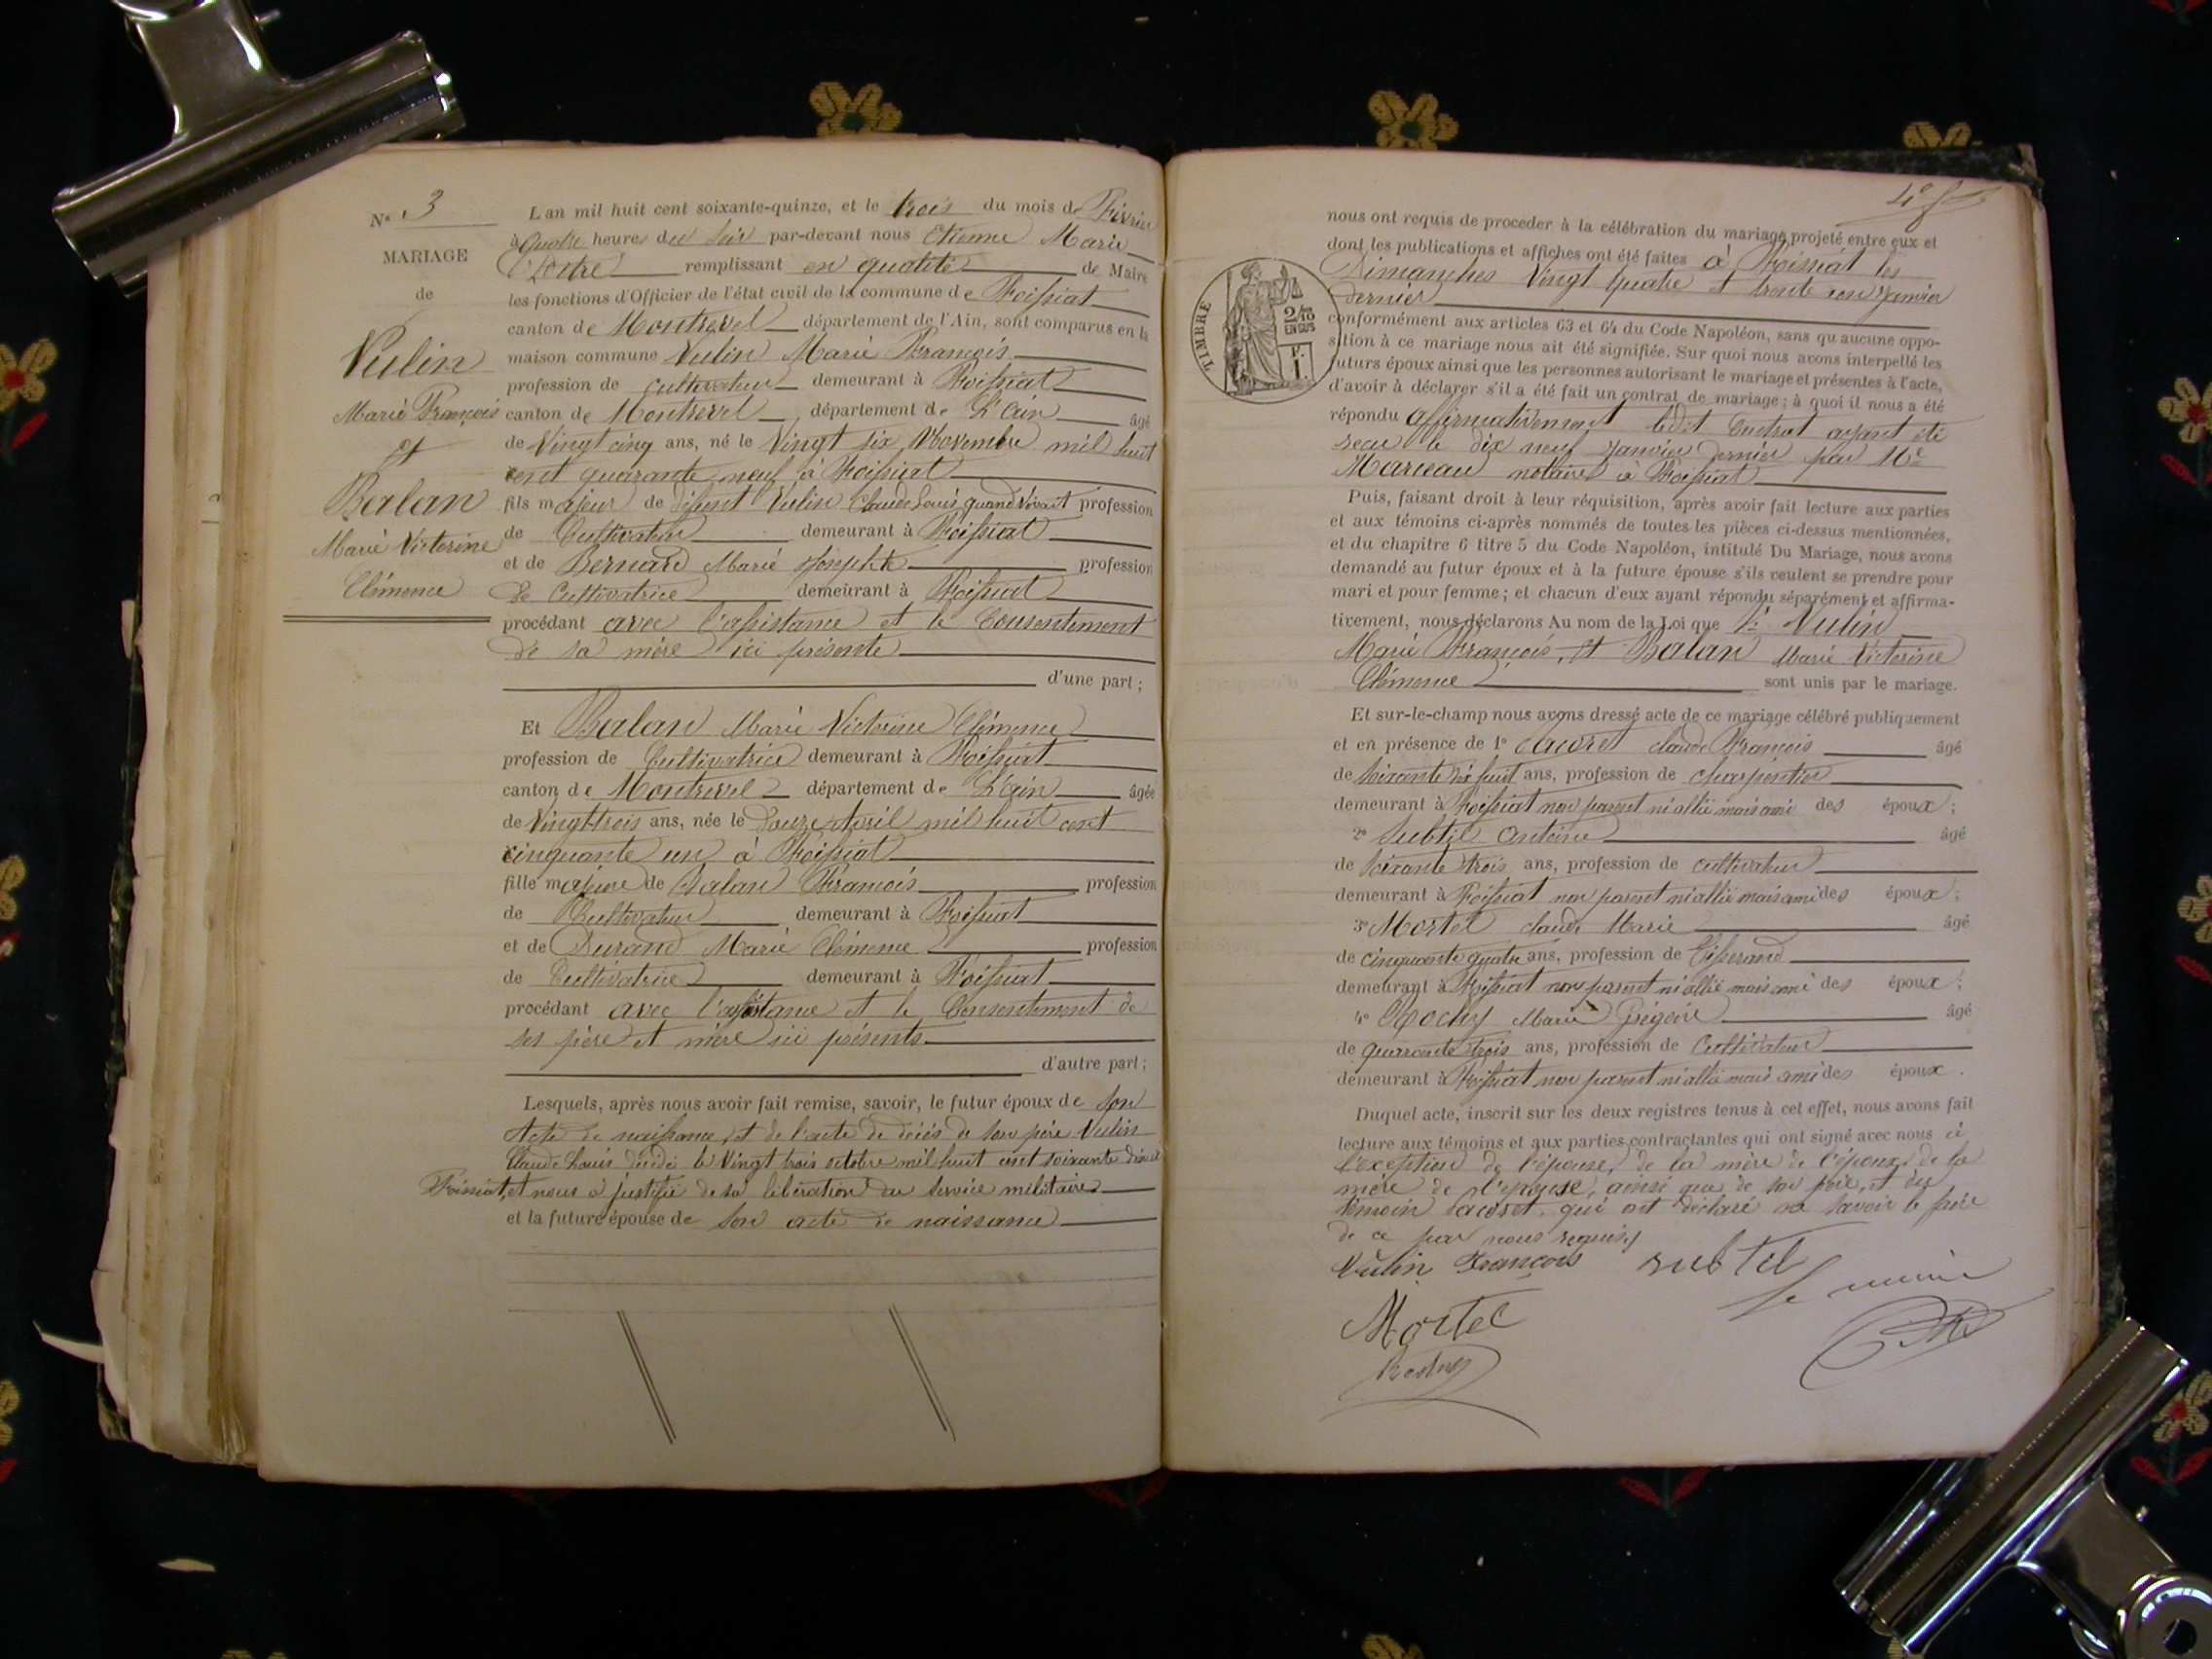 Nº 3
MARIAGE
de
Vulin
Marie François
et
Balan
Marie Victorine
Clémence
L'an mil huit cent soixante-quinze, et le trois du mois de Février
à quatre heures du soir par-devant nous Etienne Marie
remplissant en qualité de Maire
les fonctions d'Officier de l'état civil de la commune de Foissiat
canton de Montrevel département de l'Ain, sont comparus en la
maison commune Vulin Marie François
profession de cultivateur demeurant à Foissiat
canton de Montrevel département de L'Ain âgé
de Vingt cinq ans, né le Vingt six Novembre mil huit
cent quarante neuf à Foissiat
fils majeur de défunt Vulin Claude Louis quand vivait profession
de Cultivateur demeurant à Foissiat
et de Bernard Marie Josephte profession
de Cultivatrice demeurant à Foissiat
procédant avec l'assistance et le Consentement
de sa mère ici présente
d'une part ;
Et Balan Marie Victorine Clémence
profession de Cultivatrice demeurant à Foissiat
canton de Montrevel département de L'Ain âgée
de Vingt-trois ans, née le Douze Avril mil huit cent
cinquante un à Foissiat
fille majeure de Balan François profession
de Cultivateur demeurant à Foissiat
et de Durand Marie Clémence profession
de Cultivatrice demeurant à Foissiat
procédant avec l'assistance et le Consentement de
ses père et mère ici présents
d'autre part ;
Lesquels, après nous avoir fait remise, savoir, le futur époux de son
Acte de naissance, et de l'acte de décès de son père Vulin
Claude Louis décédé le Vingt trois octobre mil huit cent soixante
Foissiat, et nous a justifié de sa libération du service militaire
et la future épouse de son acte de naissance
TIMBRE
2/10
EN SUS
F.
1.
nous ont requis de proceder à la célébration du mariage projeté entre eux et
dont les publications et affiches ont été faites à Foissiat les
Dimanches Vingt quatre et trente un Janvier
dernier
conformément aux articles 63 et 64 du Code Napoléon, sans qu'aucune oppo-
sition à ce mariage nous ait été signifiée. Sur quoi nous avons interpellé les
futurs époux ainsi que les personnes autorisant le mariage et présentes à l'acte,
d'avoir à déclarer s'il a été fait un contrat de mariage ; à quoi il nous a été
répondu affirmativement ledit Contrat ayant été
recu le dix neuf Janvier dernier par Me
notaire à Foissiat
Puis, faisant droit à leur réquisition, après avoir fait lecture aux parties
et aux témoins ci-après nommés de toutes les pièces ci-dessus mentionnées,
et du chapitre 6 titre 5 du Code Napoléon, intitulé Du Mariage, nous avons
demandé au futur époux et à la future épouse s'ils veulent se prendre pour
mari et pour femme ; et chacun d'eux ayant répondu séparément et affirma-
tivement, nous déclarons Au nom de la Loi que le Vulin
Marie François, et Balan Marie Victorine
Clémence sont unis par le mariage.
Et sur-le-champ nous avons dressé acte de ce mariage célébré publiquement
et en présence de 1º claude François âgé
de soixante dix huit ans, profession de charpentier
demeurant à Foissiat non parent ni allié mais ami des époux ;
2º Subtil Antoine âgé
de soixante trois ans, profession de cultivateur
demeurant à Foissiat non parent ni allié mais ami des époux ;
3º Mortel claude Marie âgé
de cinquante quatre ans, profession de Tisserand
demeurant à Foissiat non parent ni allié mais ami des époux ;
4º Marie âgé
de quarante trois ans, profession de Cultivateur
demeurant à Foissiat non parent ni allié mais ami des époux.
Duquel acte, inscrit sur les deux registres tenus à cet effet, nous avons fait
lecture aux témoins et aux parties contractantes qui ont signé avec nous à
l'exception de l'épouse, de la mère de l'époux, de la
mère de l'épouse, ainsi que de son père, et du
témoin qui ont déclaré ne savoir le faire
de ce par nous requis
Vulin François
subtil
Le maire
Mortel